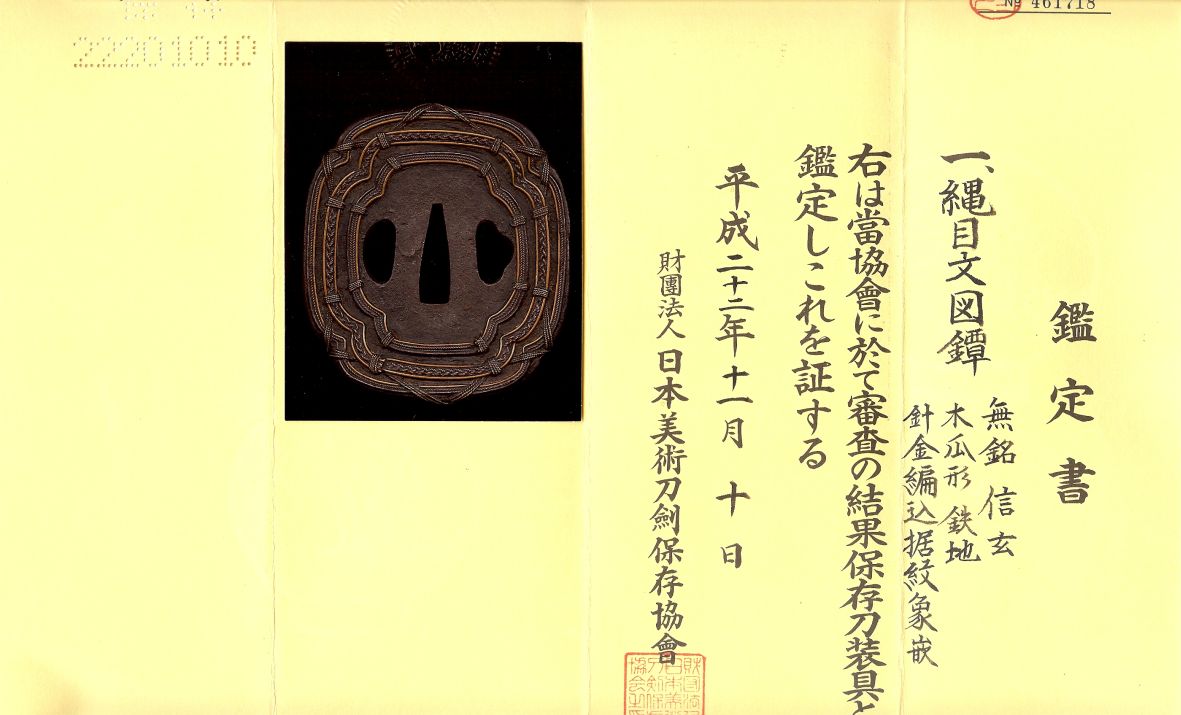 № 461718
鑑定書
一、縄目文図鐔
無銘 信玄
木瓜形 鉄地
針金編込据紋象嵌
右は當協會に於て審査の結果保存刀装具と
鑑定しこれを証する
平成二十二年十一月 十日
財團法人 日本美術刀劍保存協會
22201010